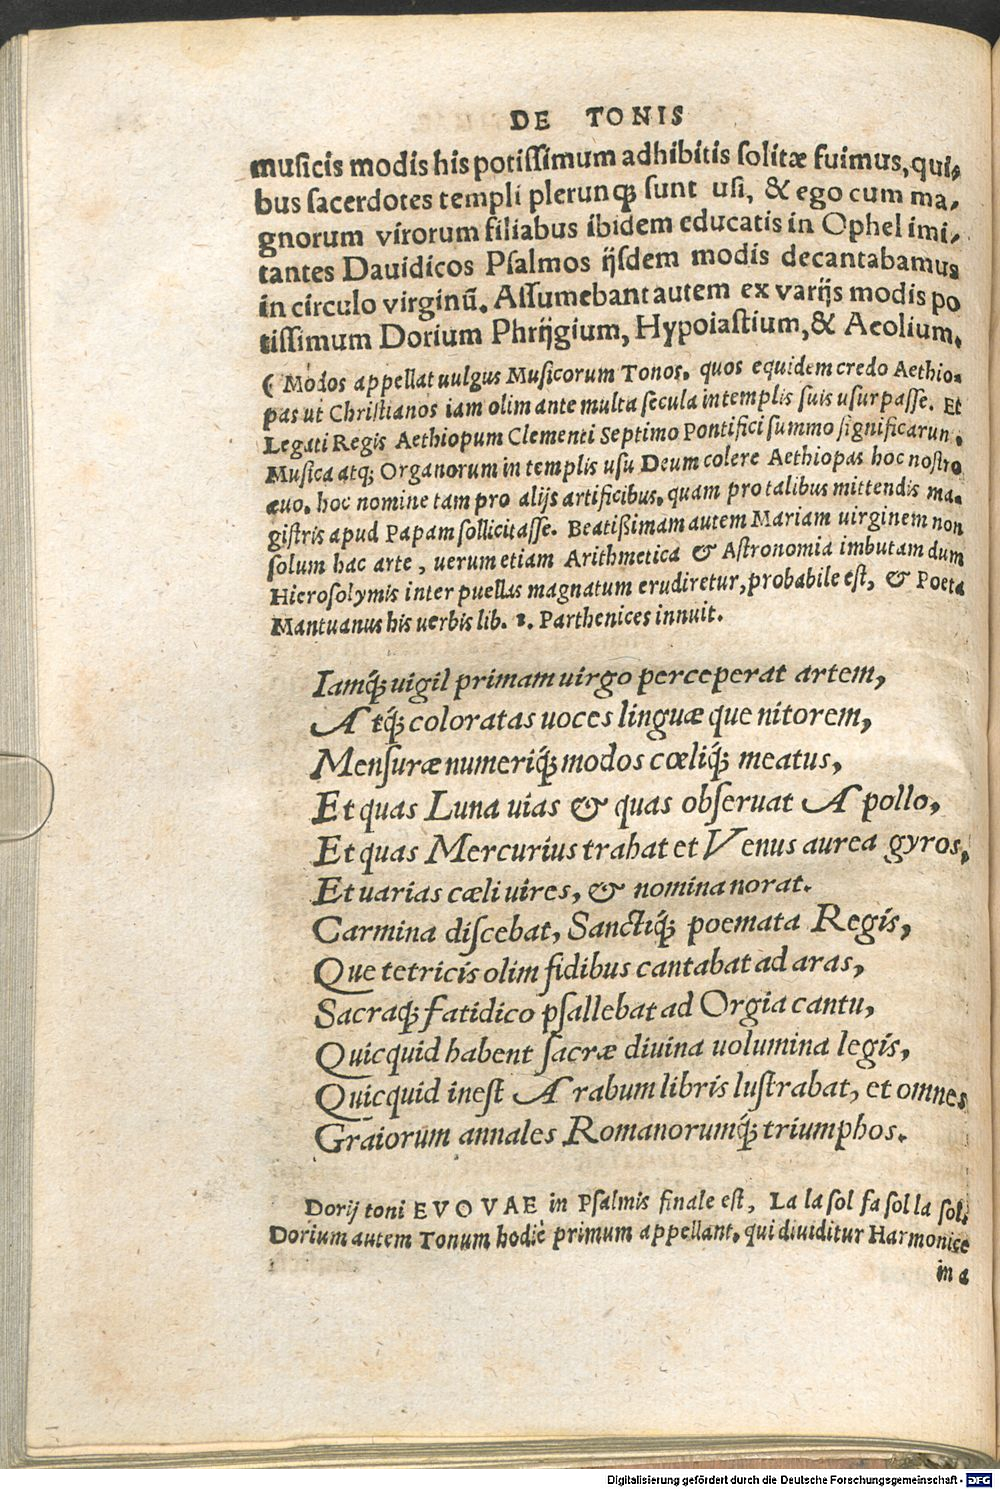 DE TONIS
musicis modis his potissimum adhibitis solitæ fuimus, qui,
bus sacerdotes templi plerunq; sunt usi, & ego cum ma,
gnorum virorum filiabus ibidem educatis in Ophel imi,
tantes Dauidicos Psalmos ijsdem modis decantabamus
in circulo virginũ. Assumebant autem ex varijs modis po
tissimum Dorium Phrijgium, Hypoiastium, & Aeolium.
( Modos appellat uulgus Musicorum Tonos. quos equidem credo Aethio-
pas ut Christianos iam olim ante multa secula in templis suis usurpasse. Et
Legati Regis Aethiopum Clementi Septimo Pontifici summo significarun.
Musica atq; Organorum in templis usu Deum colere Aethiopas hoc nostro
æuo. hoc nomine tam pro alijs artificibus, quam pro talibus mittendis ma-
gistris apud Papam sollicitasse. Beatißimam autem Mariam uirginem non
solum hac arte, uerum etiam Arithmetica & Astronomia imbutam dum
Hierosolymis inter puellas magnatum erudiretur, probabile est, & Poeta
Mantuanus his uerbis lib. 1. Parthenices innuit.
Iamq́; uigil primam uirgo perceperat artem,
Atq́; coloratas uoces linguæ que nitorem,
Mensuræ numeriq́; modos cœliq́; meatus,
Et quas Luna uias & quas obseruat Apollo,
Et quas Mercurius trahat et Venus aurea gyros,
Et uarias cæli uires, & nomina norat.
Carmina discebat, Sanctiq́; poemata Regis,
Que tetricis olim fidibus cantabat ad aras,
Sacraq; fatidico psallebat ad Orgia cantu,
Quicquid habent sacræ diuina uolumina legis,
Quicquid inest Arabum libris lustrabat, et omnes
Graiorum annales Romanorumq́; triumphos.
Dorij toni EVOVAE in Psalmis finale est, La la sol fa sol la sol.
Dorium autem Tonum hodiè primum appellant. qui diuiditur Harmonice
in a
Digitalisierung gefördert durch die Deutsche Forschungsgemeinschaft - DFG